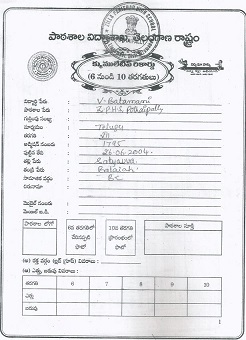 పాఠశాల విద్యాశాఖ, తెలంగాణ రాష్ట్రం
క్యుములేటివ్ రికార్డు
(6 నుండి 10 తరగతులు)
విద్యార్థి పేరు : V. Balamani
పాఠశాల పేరు : Z.P.H.S Polkampally
గుర్తింపు సంఖ్య :
మాధ్యమం : Telugu
తరగతి :
అడ్మిషన్ నంబరు : 1795
పుట్టిన తేది : 26.06.2004.
తల్లి పేరు : Satyavva
తండ్రి పేరు : Balaiah
సామాజిక వర్గం : BC
చిరునామా :
మొబైల్ నంబరు :
పాఠశాల లోగో
6వ తరగతిలో చేరినప్పటి ఫోటో
10వ తరగతి ప్రారంభంలో ఫోటో
పాఠశాల స్ఫూర్తి
తరగతి 6 7 8 9 10
ఎత్తు
బరువు
1